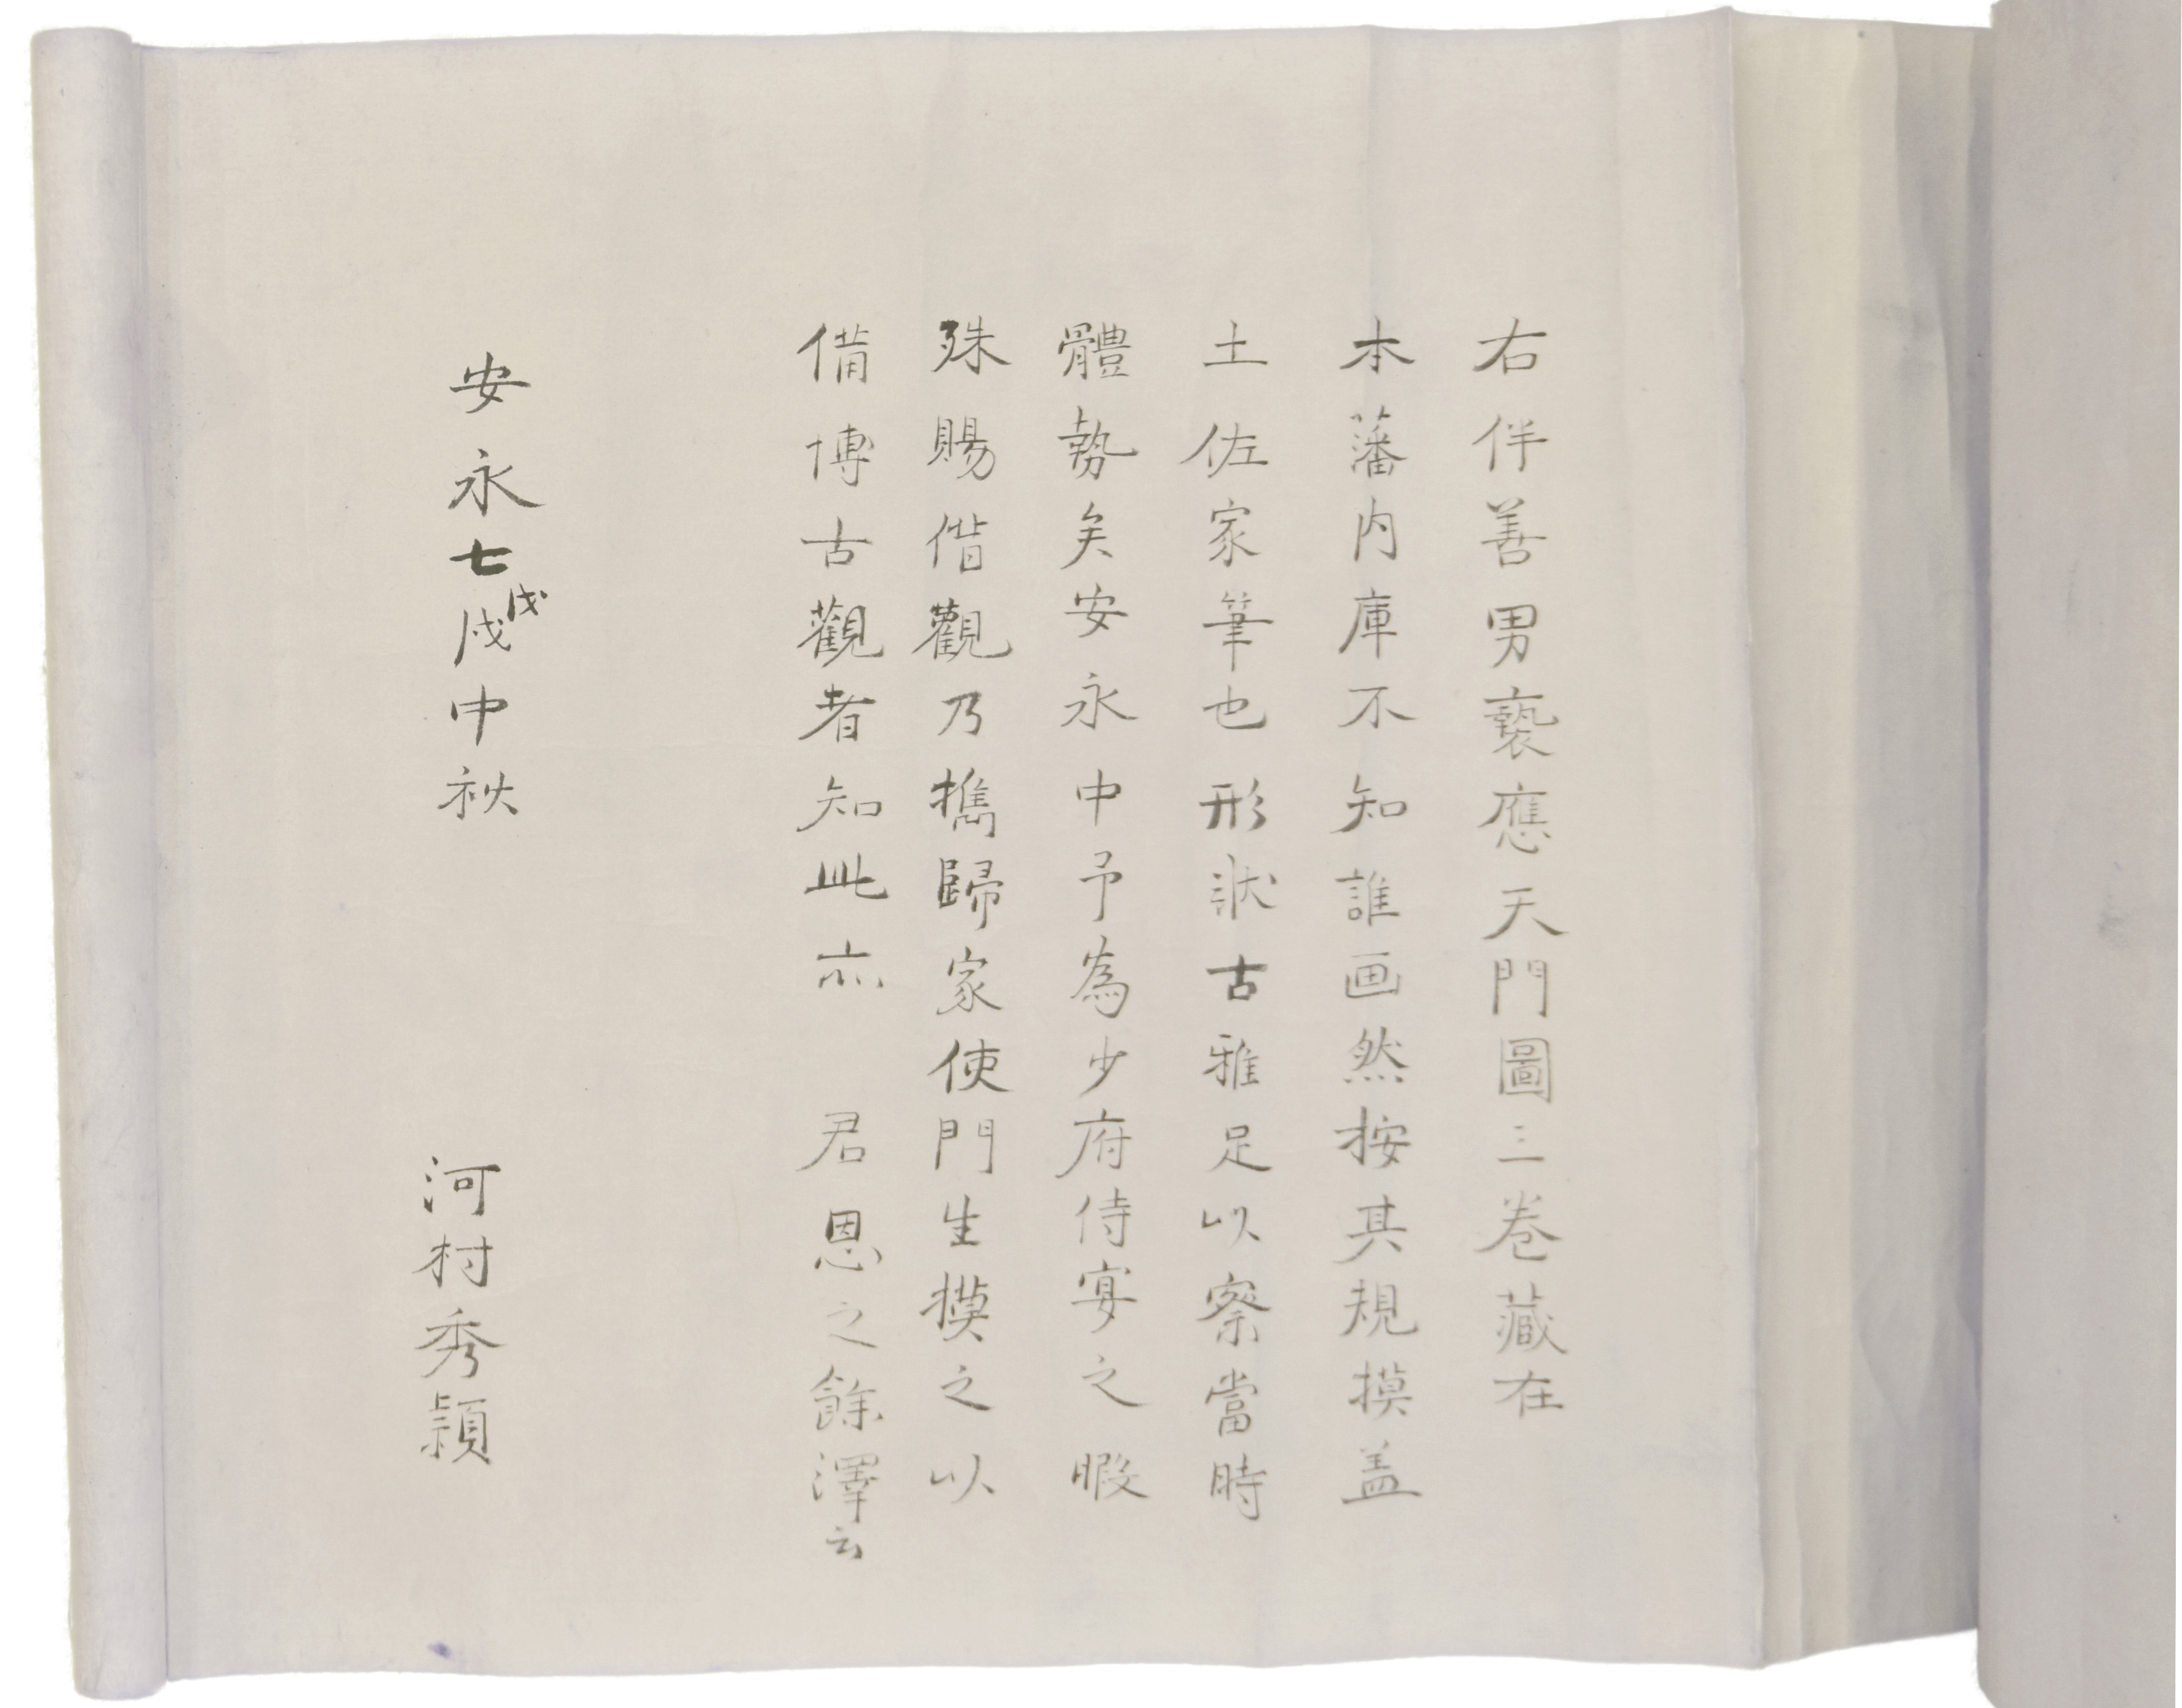 右伴善男褻應天門圖三卷藏在
本藩内庫不知誰画然按其規摸盖
土佐家筆也形狀古雅足以察當時
體勢矣安永中予為少府侍宴之暇
殊賜借觀乃攜歸家使門生摸之以
備博古觀者知此亦　君恩之餘澤云
安永七戊戌中秋
河村秀穎